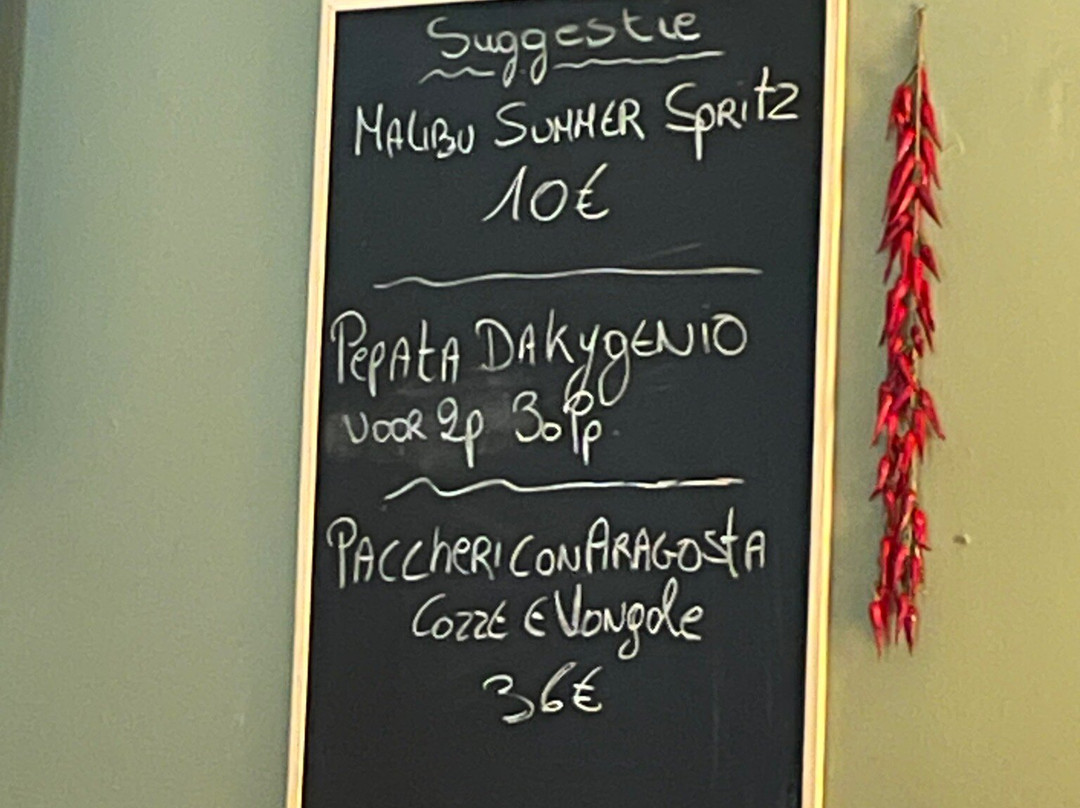 Suggestie
MALIBU SUMMER SpRitz
10€
PepAtA DAKygENIO
VOOR 2p 30Pp.
PACCheRI CON ARAGOStA
COZZE E VONgole
36€